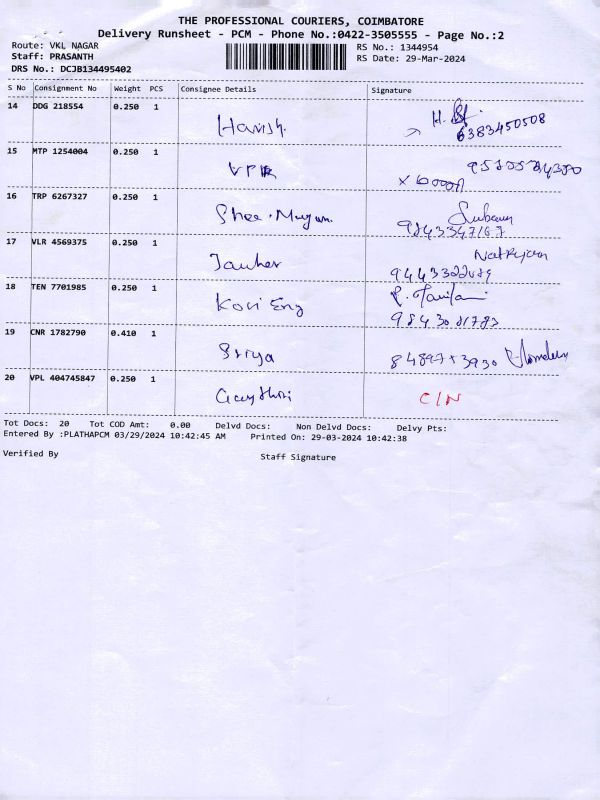 THE PROFESSIONAL COURIERS, COIMBATORE
Delivery Runsheet - PCM - Phone No.:0422-3505555 - Page No.:2
Route: VKL NAGAR RS No.: 1344954
Staff: PRASANTH RS Date: 29-Mar-2024
DRS No.: DCJB134495402
S No Consignment No Weight PCS Consignee Details Signature
14 DDG 218554 0.250 1
Harish. 6383450508
15 MTP 1254004 0.250 1
VPR
16 TRP 6267327 0.250 1
Shee.Mugan.
17 VLR 4569375 0.250 1
Natrajan
18 TEN 7701985 0.250 1
Kovi Eng
19 CNR 1782790 0.410 1
Sriya
20 VPL 404745847 0.250 1
Gaythri C/N
Tot Docs: 20 Tot COD Amt: 0.00 Delvd Docs: Non Delvd Docs: Delvy Pts:
Entered By :PLATHAPCM 03/29/2024 10:42:45 AM Printed On: 29-03-2024 10:42:38
Verified By Staff Signature